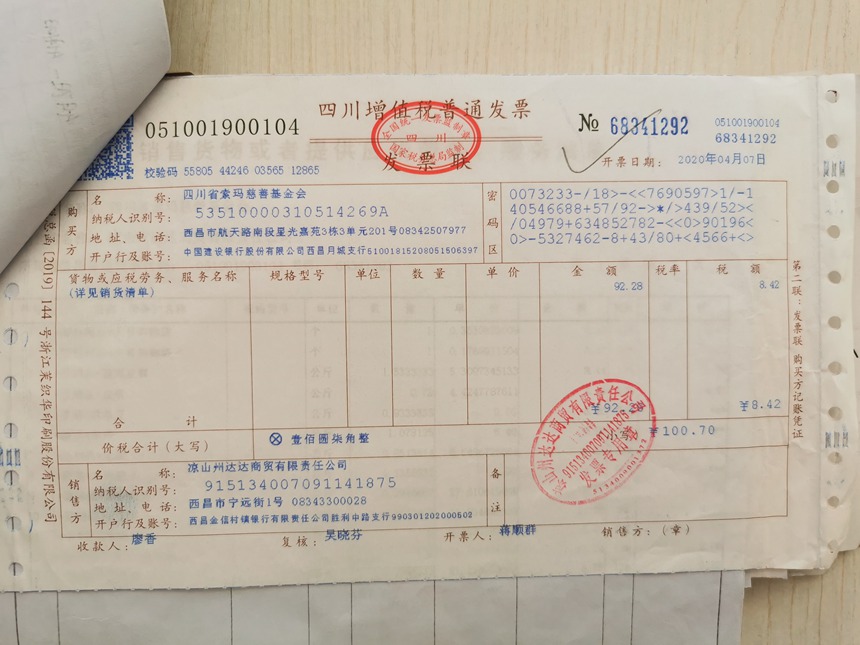 四川增值税普通发票
051001900104
№ 68341292
051001900104
68341292
全国统一发票监制章
四川
国家税务总局监制
发票联
校验码 55805 44246 03565 12865
开票日期： 2020年04月07日
购买方
名称： 四川省索玛慈善基金会
纳税人识别号： 53510000310514269A
地址、电话： 西昌市航天路南段星光嘉苑3栋3单元201号08342507977
开户行及账号： 中国建设银行股份有限公司西昌月城支行51001815208051506397
密码区
0073233-/18>-<<7690597>1/-1
40546688+57/92->*/>439/52><
/04979+634852782-<<0>90196<
0>-5327462-8+43/80+<4566+<>
货物或应税劳务、服务名称 规格型号 单位 数量 单价 金额 税率 税额
(详见销货清单) 92.28 8.42
合计 ￥92.28 ￥8.42
价税合计（大写） ⊗ 壹佰圆柒角整 小写 ￥100.70
销售方
名称： 凉山州达达商贸有限责任公司
纳税人识别号： 915134007091141875
地址、电话： 西昌市宁远街1号 08343300028
开户行及账号： 西昌金信村镇银行有限责任公司胜利中路支行990301202000502
备注
凉山州达达商贸有限责任公司
915134007091141875
发票专用章
收款人： 廖香 复核： 吴晓芬 开票人： 蒋顺群 销售方：（章）
第二联：发票联 购买方记账凭证
〔2019〕144号浙江莱织华印刷股份有限公司